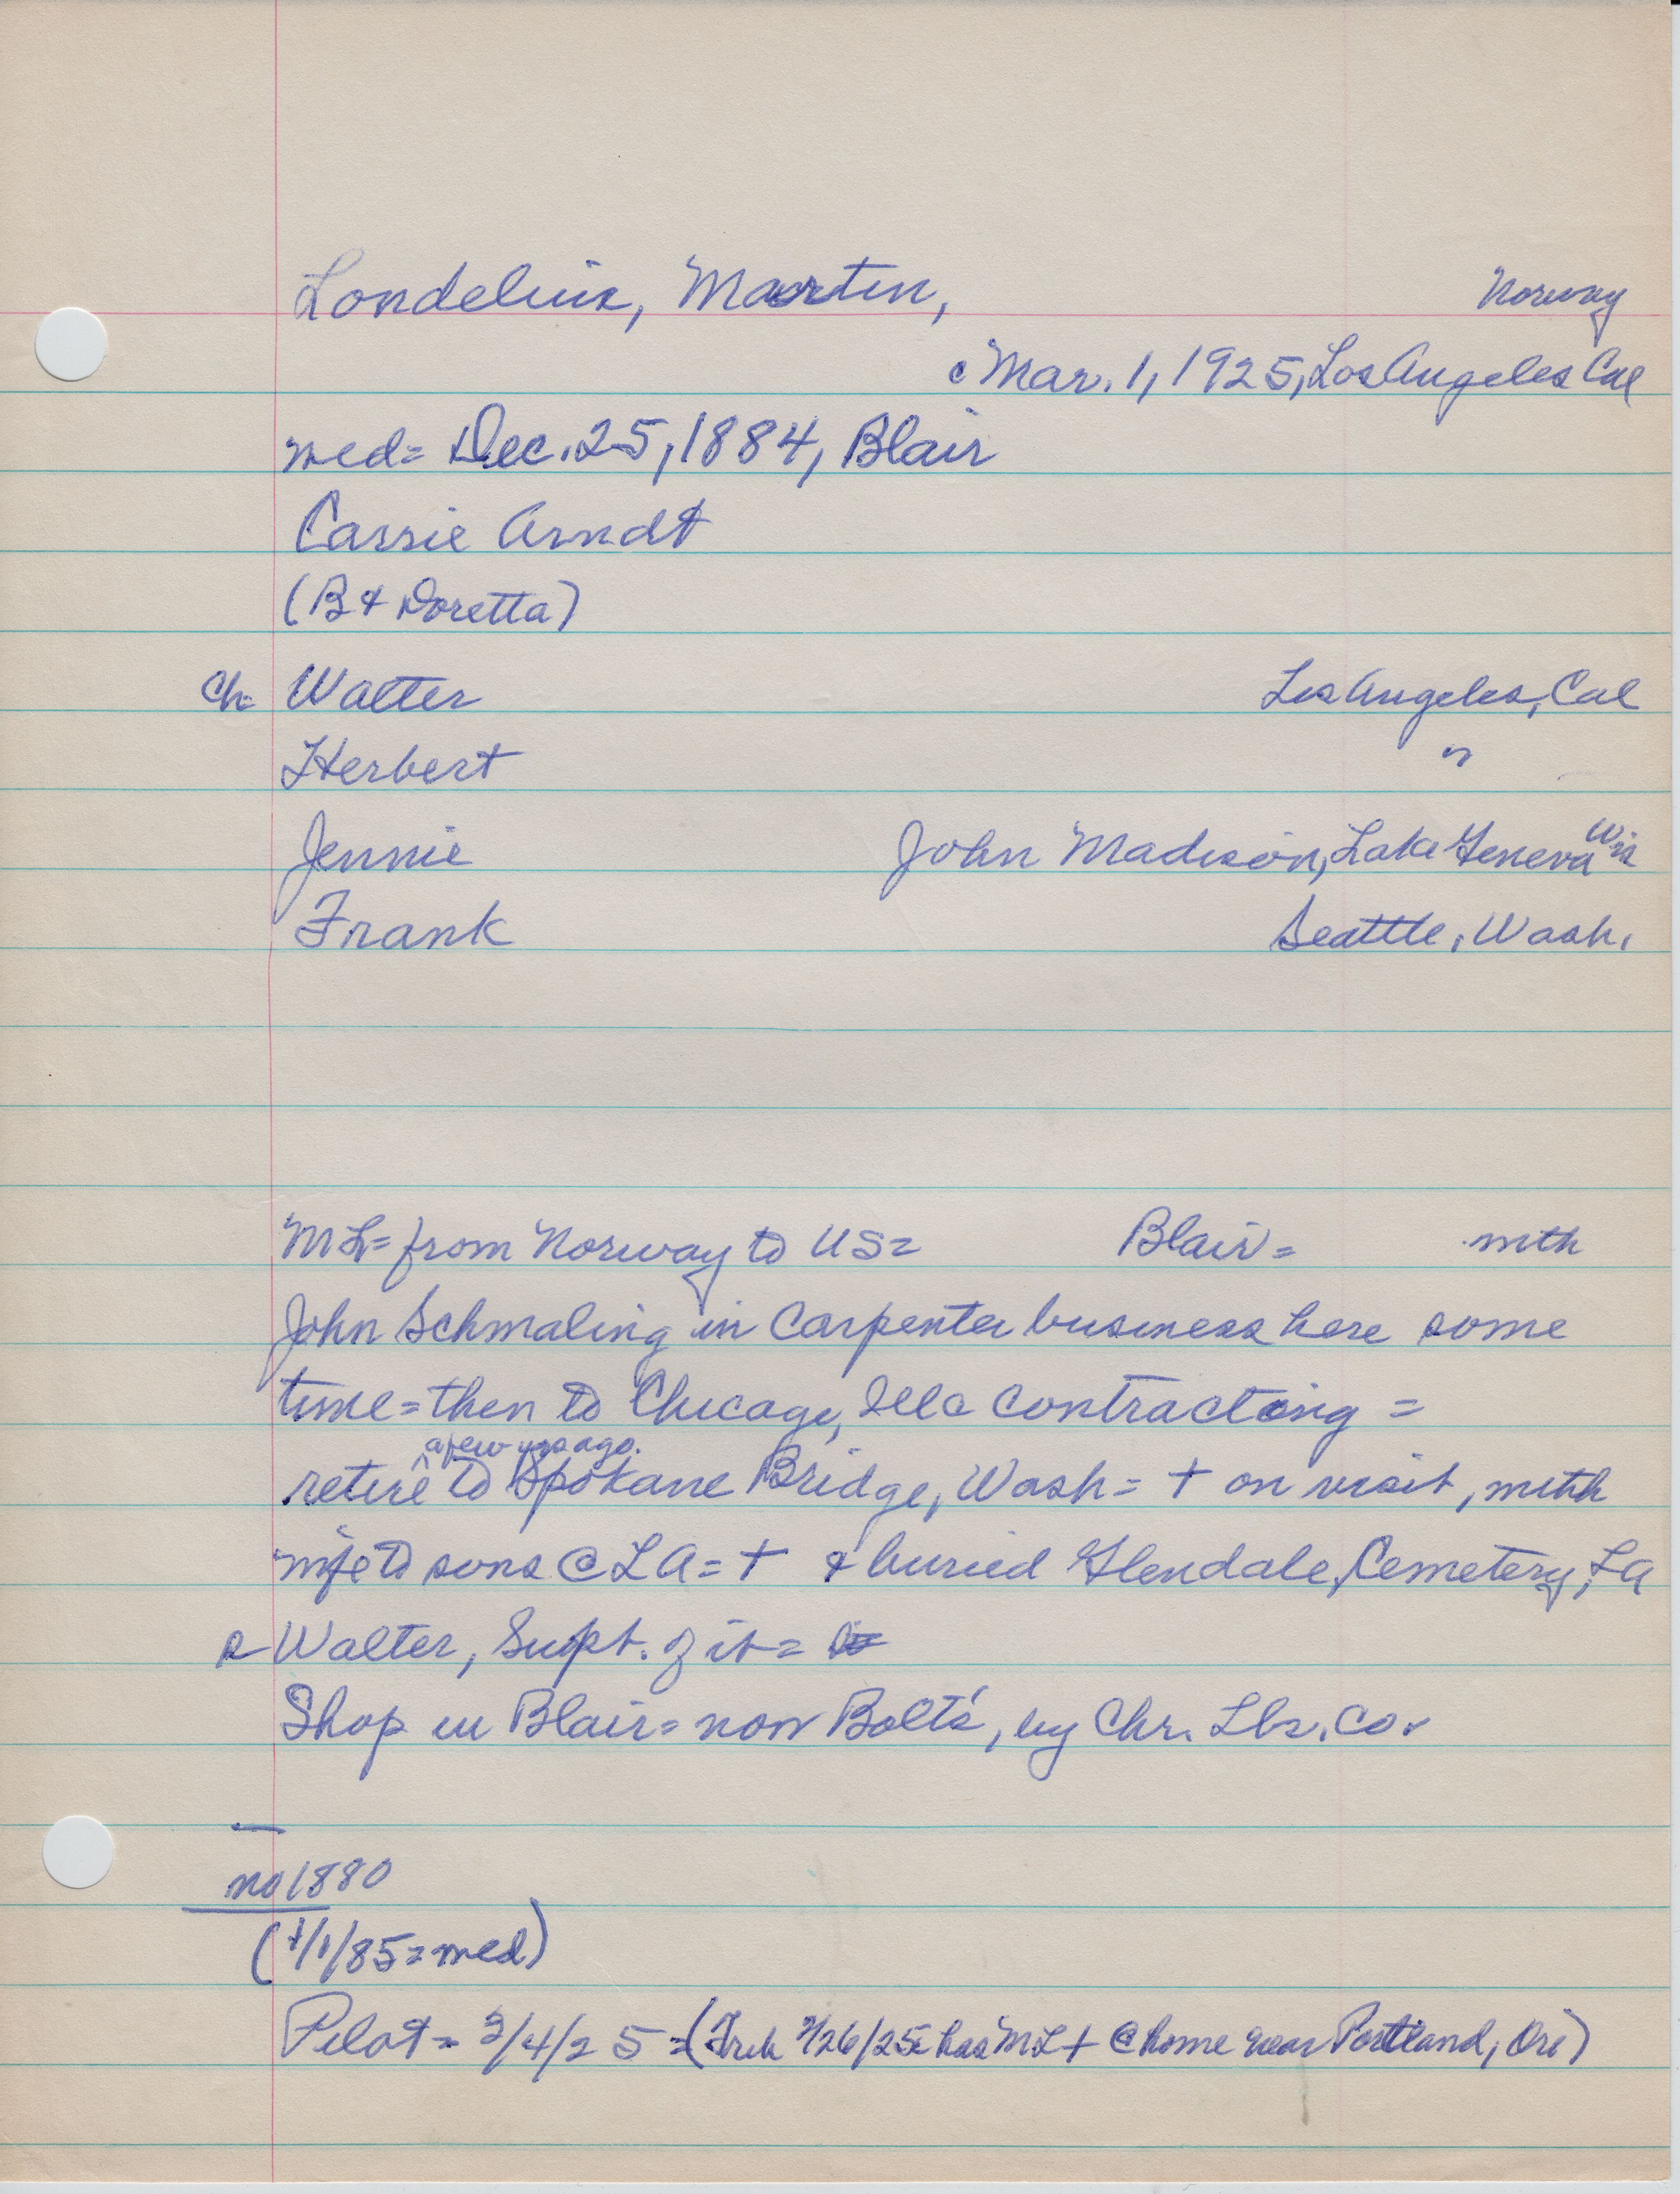 Londelius, Martin, Norway
c Mar. 1, 1925, Los Angeles Cal
med= Dec. 25, 1884, Blair
Carrie Arndt
(B & Doretta)
Ch Walter Los Angeles, Cal
Herbert "
Jennie John Madison, Lake Geneva Wis
Frank Seattle, Wash.
ML= from Norway to US= Blair= with
John Schmaling in Carpenter business here some
time= then to Chicago, Ills contracting =
a few yrs ago.
retire to Spokane Bridge, Wash= + on visit, with
wife to sons @ LA= + & buried Glendale Cemetery, La
Walter, Supt. of it=
Shop in Blair= now Bolt's, by Chr. Lbr. Co.
no 1880
(1/1/85= med)
Pilot= 3/4/25= ( /26/25= has ML + @ home near Portland, Ore)